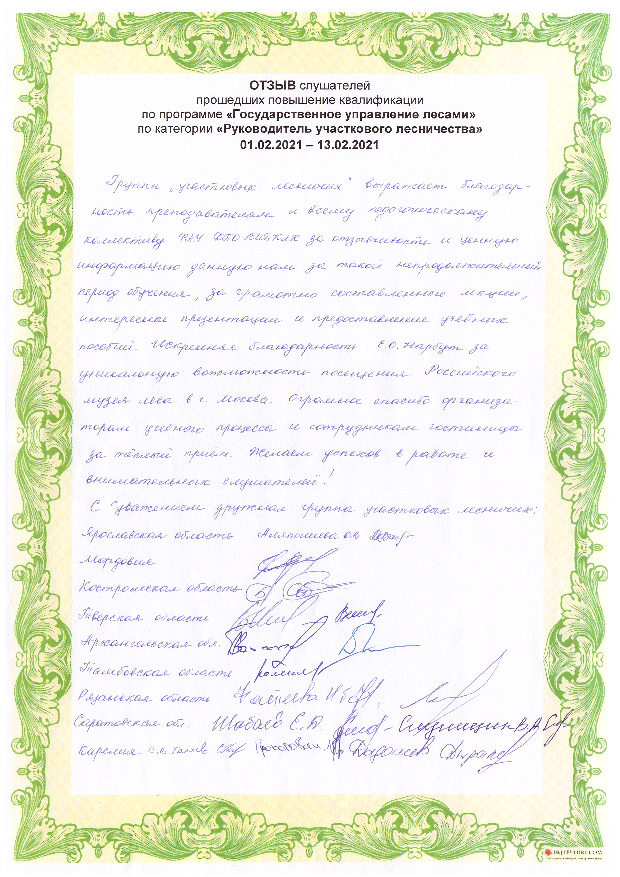 ОТЗЫВ слушателей
прошедших повышение квалификации
по программе «Государственное управление лесами»
по категории «Руководитель участкового лесничества»
01.02.2021 – 13.02.2021
Группа „участковых лесничих" выражает благодар-
ность преподавателям и всему педагогическому
коллективу ФАУ ДПО ВИПКЛХ за отзывчивость и ценную
информацию данную нам за такой непродолжительный
период обучения, за грамотно составленные лекции,
интересные презентации и предоставление учебных
пособий. Искренняя благодарность Е.О. Нарбут за
уникальную возможность посещения Российского
музея леса в г. Москва. Огромное спасибо организа-
торам учебного процесса и сотрудникам гостиницы
за тёплый прием. Желаем успехов в работе и
внимательных слушателей!
С уважением дружная группа участковых лесничих:
Ярославская область
Мордовия
Костромская область
Тверская область
Архангельская обл.
Тамбовская область
Рязанская область
Саратовская обл. Шабаев С.А.
Карелия